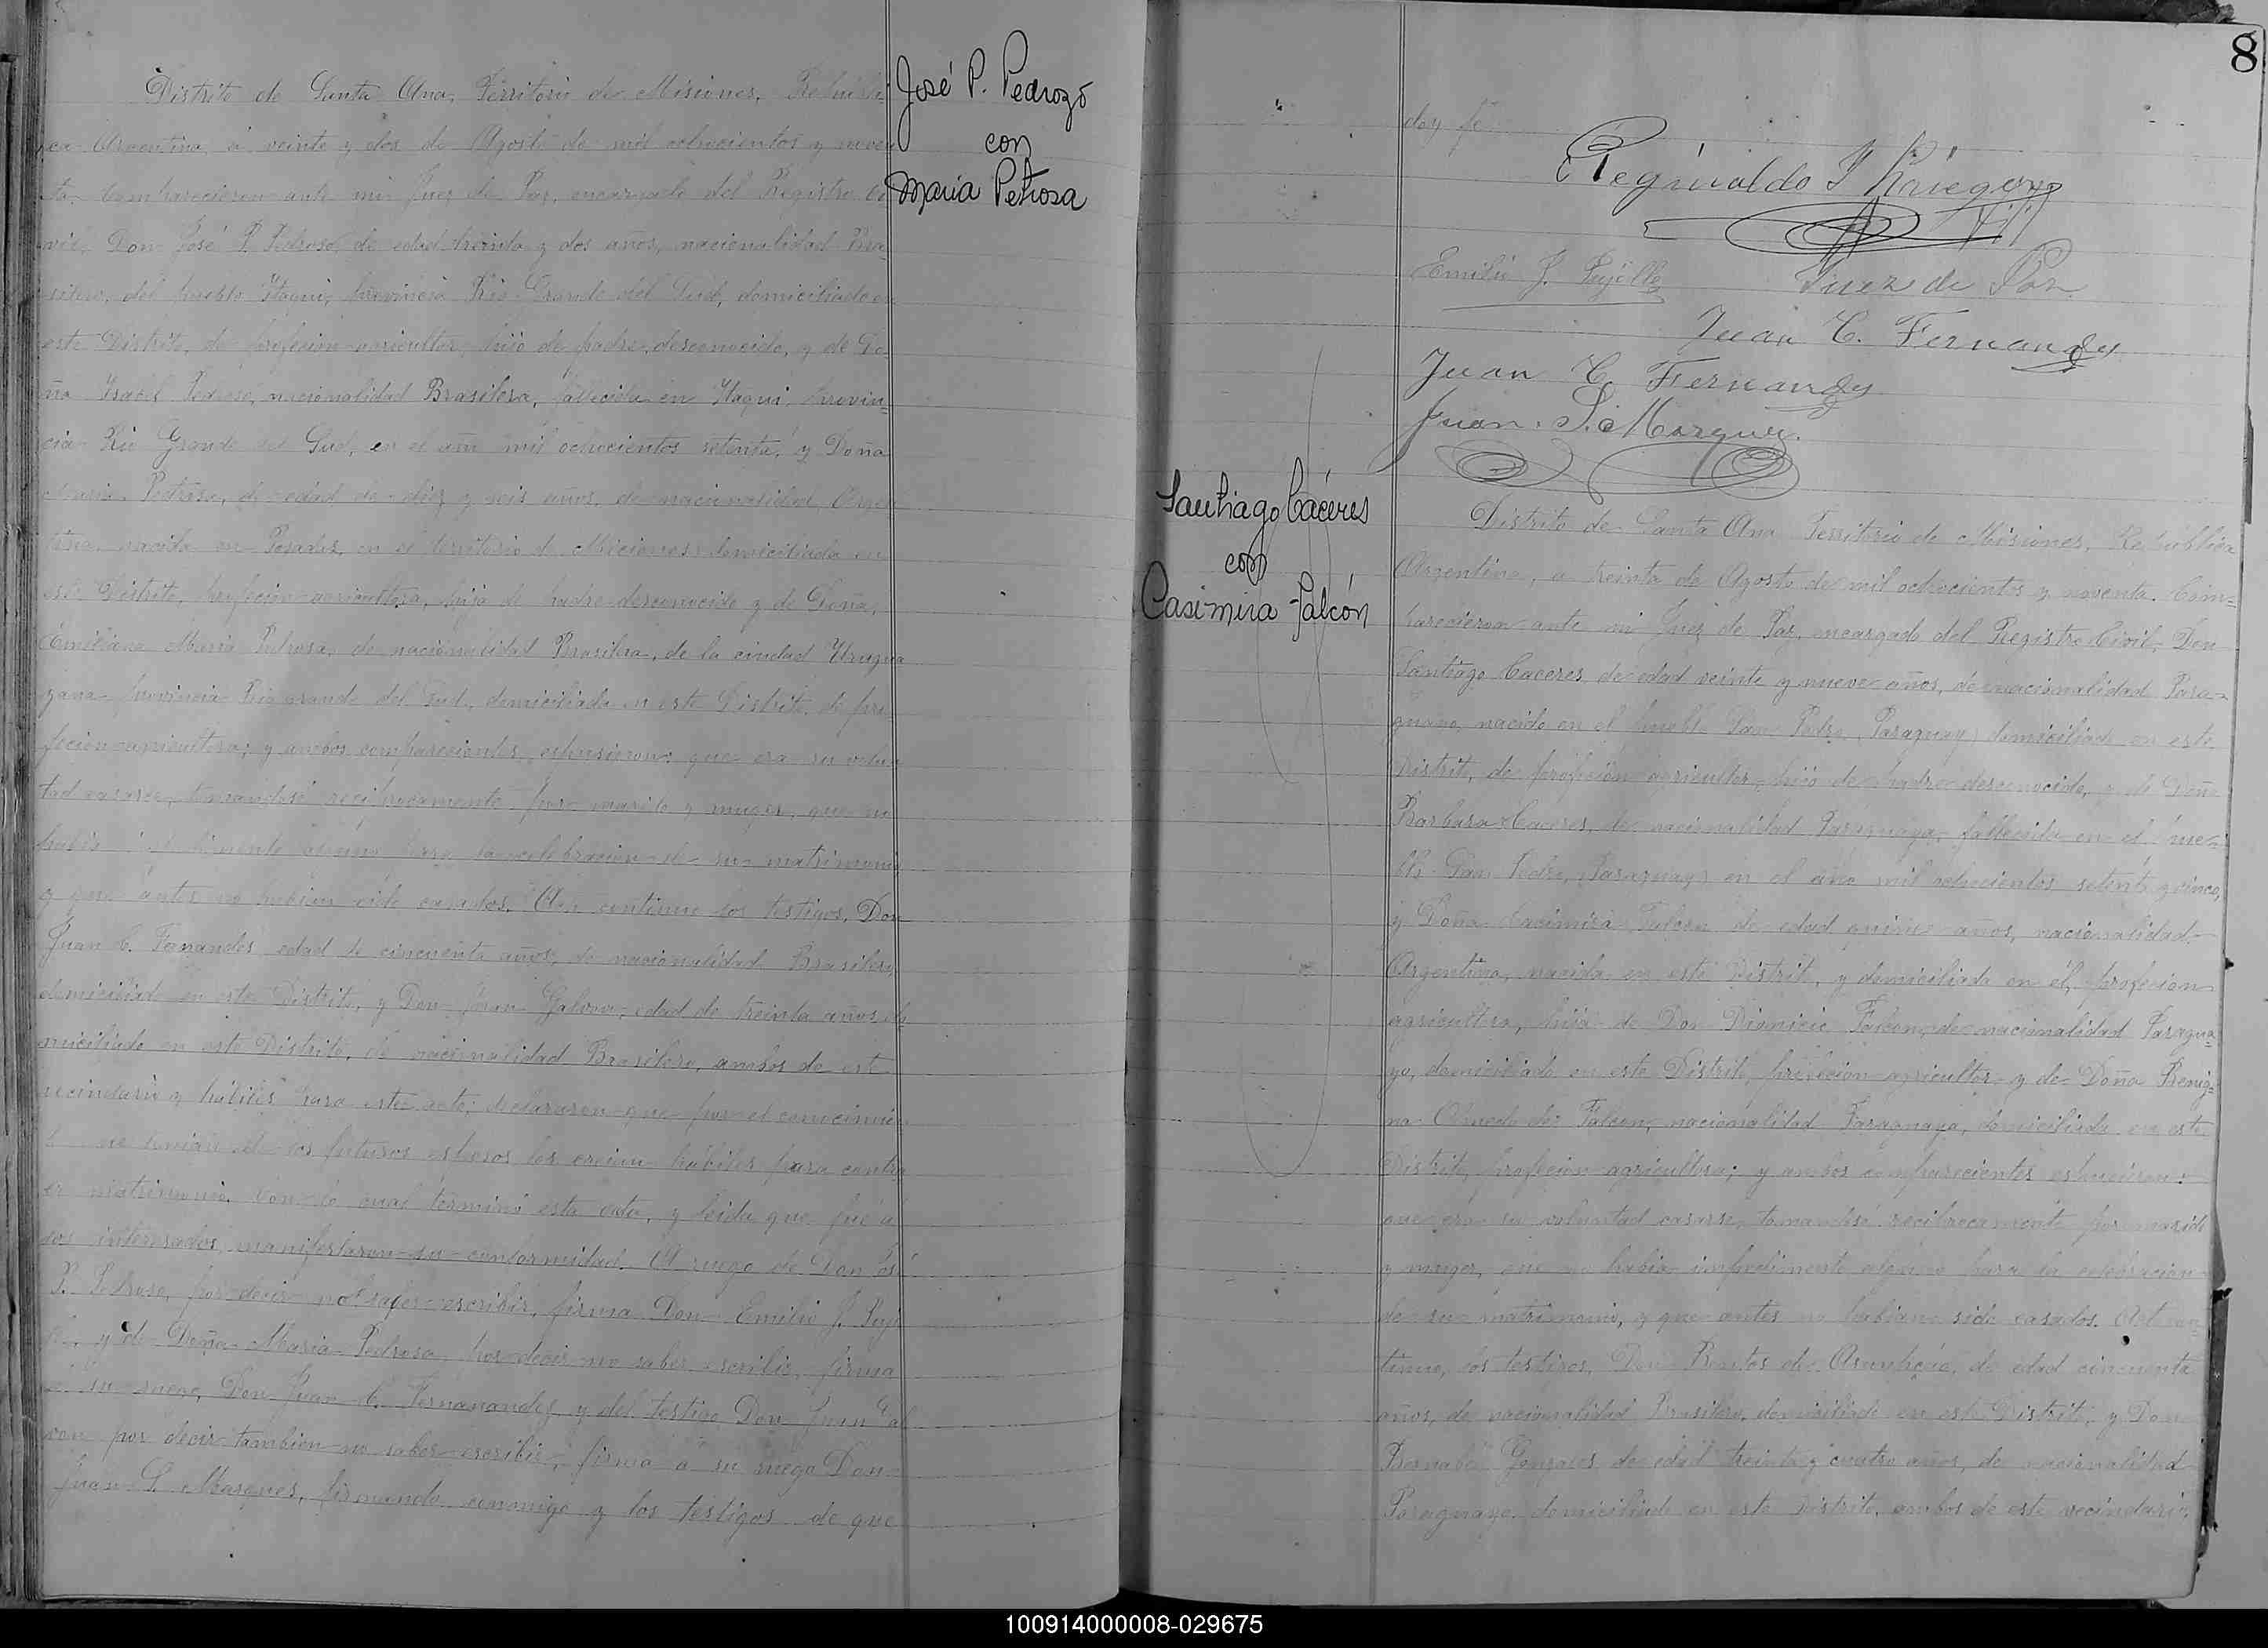 Distrito de Santa Ana, Territorio de Misiones, Republi=
ca Argentina, á veinte y dos de Agosto de mil ochocientos y noven
ta. Comparecieron ante mi Juez de Paz, encargado del Registro Ci
vil, Don José P. Pedroso, de edad treinta y dos años, nacionalidad Bra=
silero, del pueblo Ytaqui, provincia Rio Grande del Sud, domiciliado en
este Distrito, de profecion agricultor, hijo de padre desconocido, y de Do=
ña Ysabel Pedroso, nacionalidad Brasilera, fallecida en Ytaqui, provin=
cia Rio Grande del Sud, en el año mil ochocientos setenta, y Doña
Maria Pedrosa, de edad de diez y seis años, de nacionalidad Argen
tina, nacida en Posadas, en el territorio de Misiones, domiciliada en
este Distrito, profecion agricultora, hija de padre desconocido y de Doña,
Emiliana Maria Pedrosa, de nacionalidad Brasilera, de la ciudad Urugua
yana provincia Rio grande del Sud, domiciliada en este Distrito, de pro
fecion agricultora; y ambos comparecientes, espusieron: que era su volun
tad casarse, tomandose reciprocamente por marido y muger, que no
habia impedimento alguno para la celebracion de su matrimonio
y que ántes no habian sido casados. Acto continuo los testigos, Don
Juan C. Fernandes edad de cincuenta años, de nacionalidad Brasilero,
domiciliado en este Distrito, y Don Juan Galvan, edad de treinta años, do
miciliado en este Distrito, de nacionalidad Brasilero, ambos de este
vecindario y hábiles para este acto; declararon que por el conocimien
to que tenian de los futuros esposos los creian hábiles para contra
er matrimonio. Con lo cual terminó esta acta, y leida que fué á
los interesados, manifestaron su conformidad. A ruego de Don José
P. Pedroso, por decir no saber escribir, firma Don Emilio J. Puj
y de Doña Maria Pedrosa por decir no saber escribir, firma
á su ruego, Don Juan C. Fernanandez y del testigo Don Juan Gal
van por decir tambien no saber escribir, firma á su ruego Don
Juan S. Marques, firmando conmigo y los testigos de que
José P. Pedrozo
con
Maria Petrosa
8
doy fe.
Reginaldo J Krieger
Emilio J. Pujolle
Juez de Paz
Juan C. Fernandes
Juan C. Fernandes
Juan. S. Marquez.
Santiago Cáceres
con
Casimira Falcón
Distrito de Santa Ana Territorio de Misiones, República
Argentina, a treinta de Agosto de mil ochocientos y noventa. Com=
parecieron ante mi Juez de Paz, encargado del Registro Civil, Don
Santiago Caceres, de edad veinte y nueve años, de nacionalidad Para=
guayo, nacido en el pueblo San Pedro, (Paraguay) domiciliado en este
Distrito, de profecion agricultor, hijo de padre desconocido, y de Doña
Barbara Caceres, de nacionalidad Paraguaya, fallecida en el pue=
blo San Pedro, (Paraguay) en el año mil ochocientos setenta y cinco,
y Doña Cacimira Falcon de edad quince años, nacionalidad
Argentina, nacida en este Distrito, y domiciliada en él, profecion
agricultora, hija de Don Dionicio Falcon, de nacionalidad Paragua=
yo, domiciliado en este Distrito, profecion agricultor y de Doña Benig=
na de Falcon, nacionalidad Paraguaya, domiciliada en este
Distrito, profecion agricultora; y ambos comparecientes espusieron:
que era su voluntad casarse, tomandose reciprocamente por marido
y muger, que no habia impedimento alguno para la celebracion
de su matrimonio, y que antes no habian sido casados. Acto con=
tinuo, los testigos, Don Benitos de Asunção, de edad cincuenta
años, de nacionalidad Brasilero, domiciliado en este Distrito, y Don
Bernabé Gonzales, de edad treinta y cuatro años, de nacionalidad
Paraguayo domiciliado en este Distrito, ambos de este vecindario,
100914000008-029675